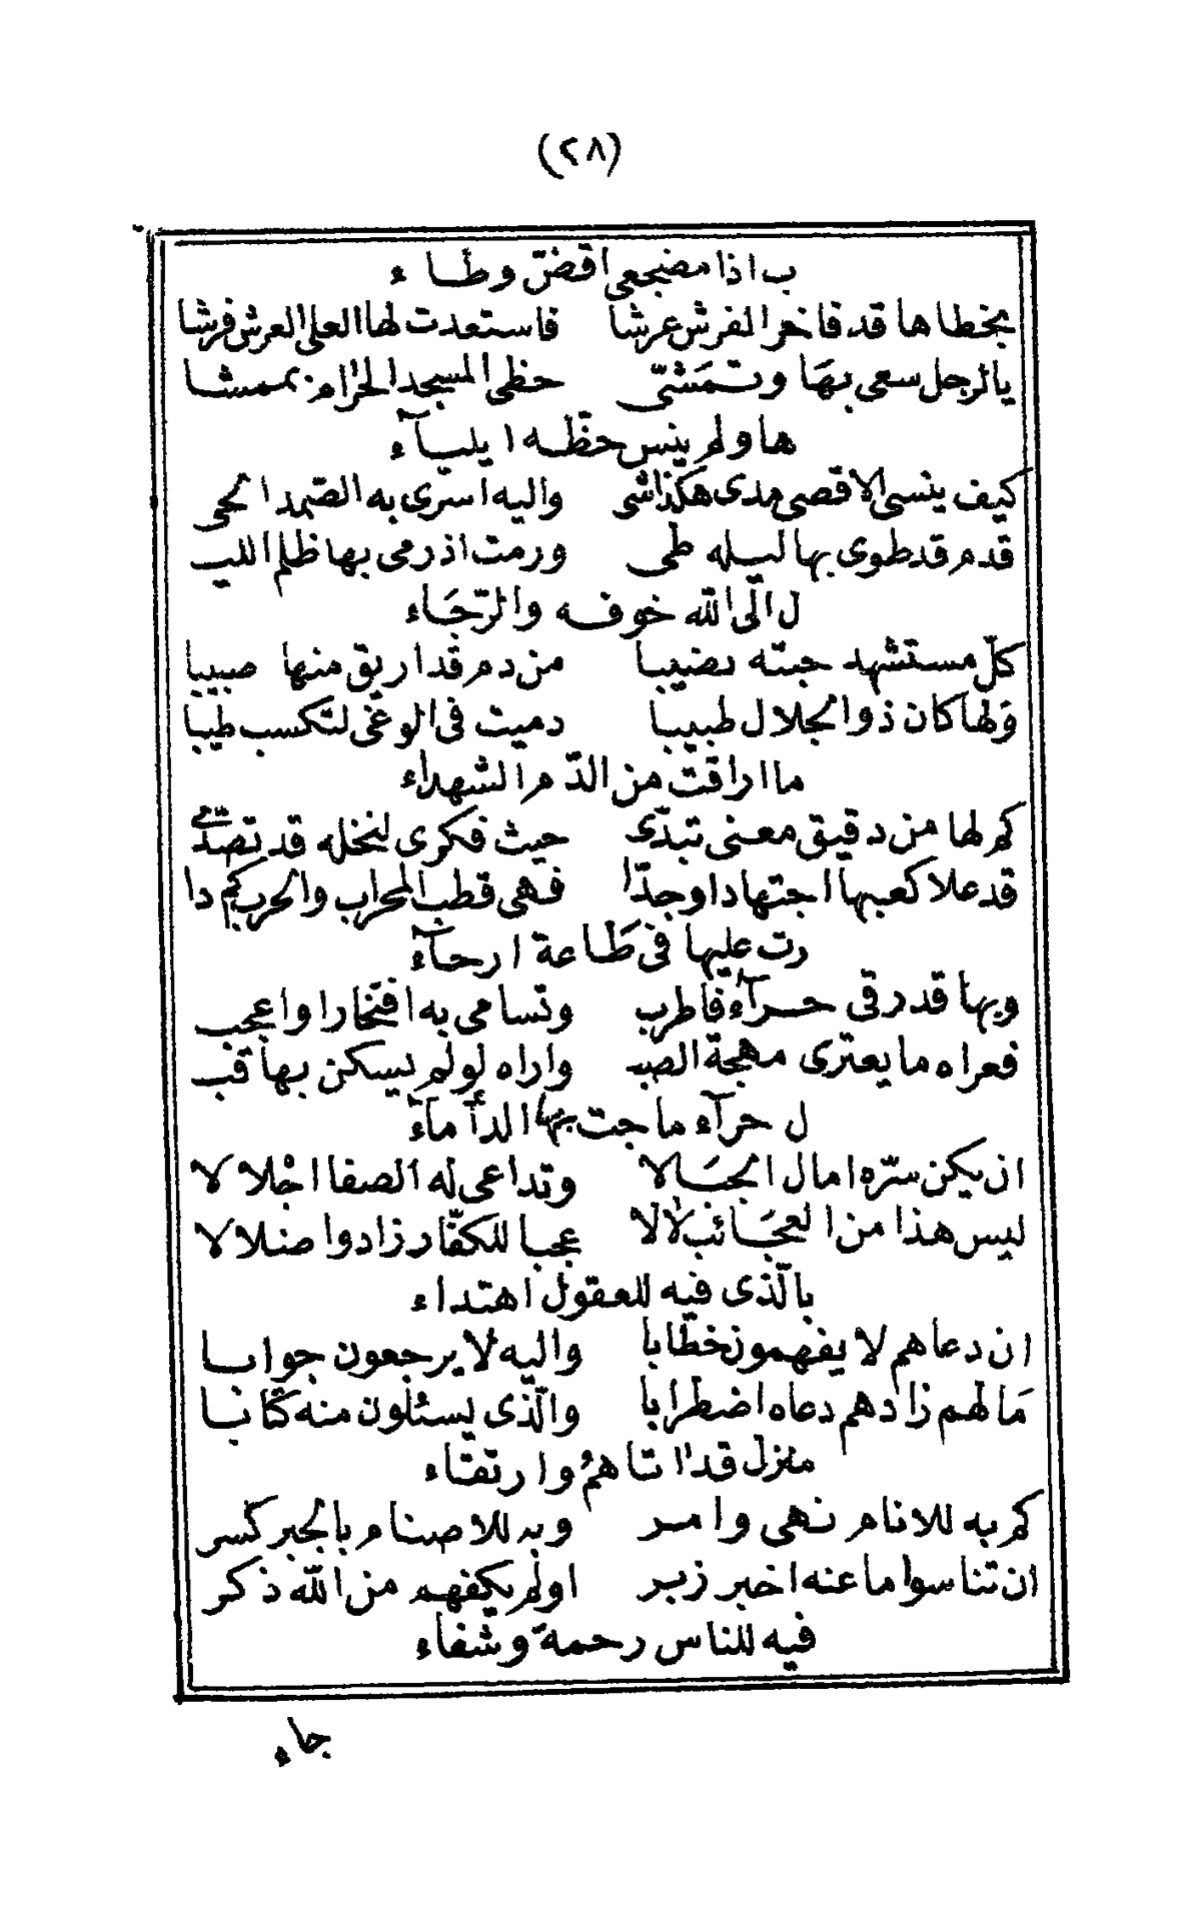 (٢٨)
ب اذا مضجعى اقضّ وطاء
بخطاها قد فاخر الفرش عرشا فاستعدت لها العلى العرش فرشا
يا لرجل سعى بهَا وتمَشّى حظى المسجد الحرام بممشا
ها ولم ينس حظّه ايليآء
كيف ينسى الاقصى مدى هكذا شى واليه اسرى به الصّمد الحى
قدم قد طوى بها ليله طى ورمت اذ رمى بها ظلم الليـ
ل الى الله خوفه والرّجَاء
كلّ مستشهد جبته نصيبا من دم قد اريق منها صبيبا
وَلها كان ذو الجلال طبيبا دميت فى الوغى لتكسب طيبا
ما اراقت من الدّم الشهداء
كم لها من دقيق معنى تبدّى حيث فكرى لنخله قد تصدّى
قد علا كعبها اجتهادا وجدّا فهى قطب المحراب والحرب كم دا
رت عليها فى طَاعة ارحآء
وبها قد رقى حرآء فاطرب وتسامى به افتخارا واعجب
فعراه ما يعترى مهجة الصب واراه لو لم يسكن بها قبـ
ل حرآء ماجت بها الدأمآء
ان يكن سرّه امال الجبَالا وتداعى له الصفا اجْلالا
ليس هذا من العجَائب لالا عجبا للكفّار زادوا ضلالا
بالّذى فيه للعقول اهتداء
ان دعاهم لا يفهمون خطابا واليه لا يرجعون جوابا
مَا لهم زادهم دعاه اضطرابا والّذى يسئلون منه كتابا
منزل قد اتاهمُ وارتقاء
كم به للانام نهى وامر وبه للاصنام بالجبر كسر
ان تناسوا ما عنه اخبر زبر اولم يكفهم من الله ذكر
فيه للناس رحمة وشفاء
جاء